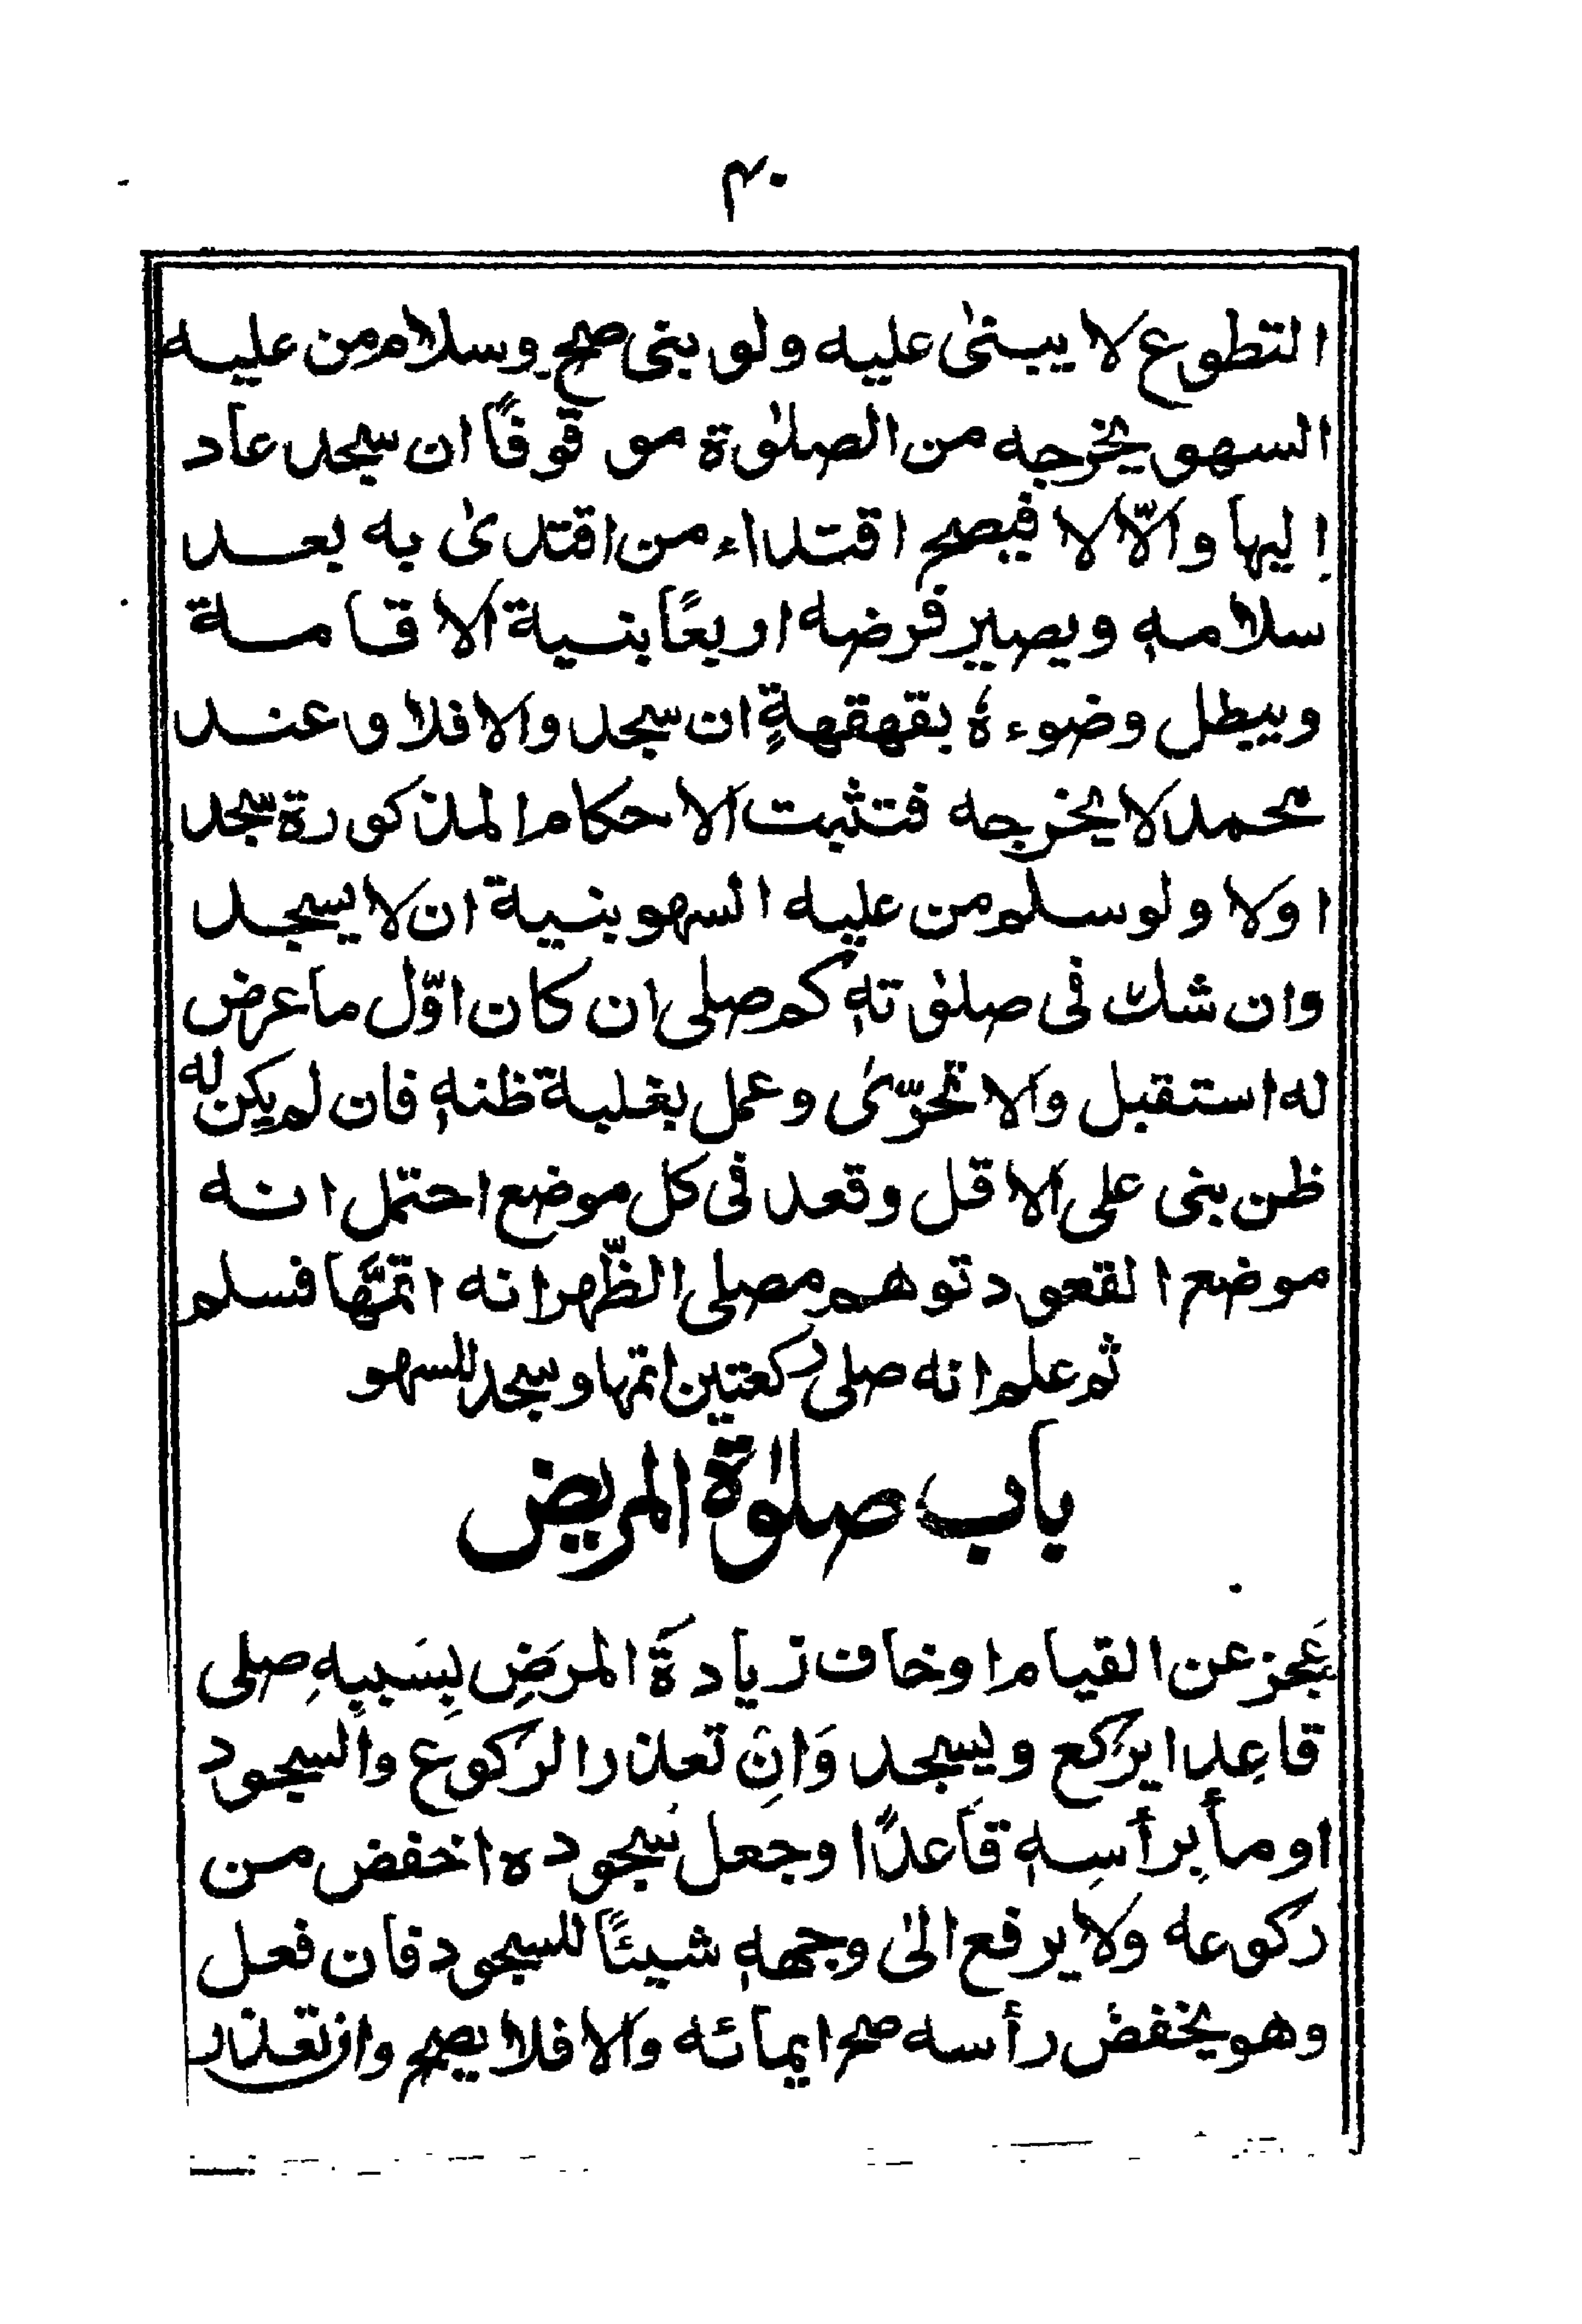 ۴۰
التطوع لا يبنىٰ عليه ولو بنى صح وسلام من عليه
السهو يخرجه من الصلوٰة موقوفًا ان سجد عاد
اليها والّا لا فيصح اقتداء من اقتدىٰ به بعد
سلامه ويصير فرضه اربعًا بنية الاقامة
ويبطل وضوءهٗ بقهقهةٍ ان سجد والا فلا وعند
محمد لا يخرجه فتثبت الاحكام المذكورة سجد
اولا ولو سلم من عليه السهو بنية ان لا يسجد
وان شك فى صلوٰته كم صلى ان كان اوّل ما عرض
له استقبل والا تحرّىٰ وعمل بغلبة ظنه فان لم يكن له
ظن بنى على الاقل وقعد فى كل موضع احتمل انه
موضع القعود توهم مصلى الظّهر انه اتمَّها فسلم
ثم علم انه صلى ركعتين اتمها وسجد للسهو
باب صلوٰة المريض
عَجز عن القيام او خاف زيادةَ المرَضِ بِسَببِهِ صلى
قاعِدا يركع ويسجد وَاِنْ تعذر الركوع والسجود
اومأ برأسِه قَاعدًا وجعل سُجوده اخفض من
ركوعه ولا يرفع الىٰ وجهه شيئًا للسجود فان فعل
وهو يخفض رأسه صح ايمائه والا فلا يصح وان تعذر